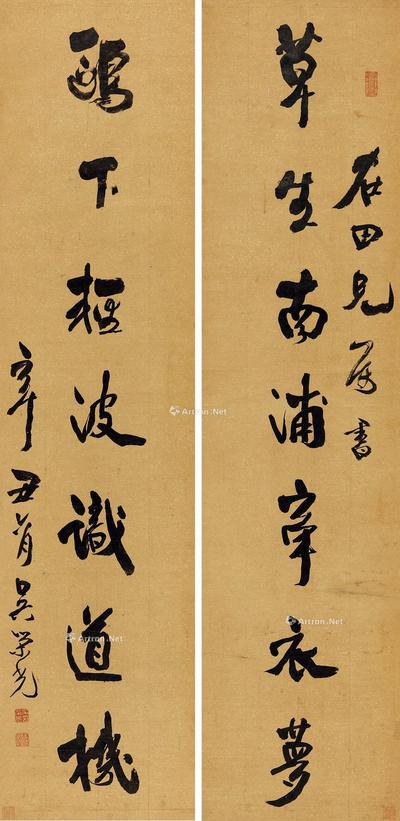 草生南浦牽衣夢
田兄屬書
鷗下波識道機
辛丑吳榮光
Artron.Net
Artron.Net
Artron.Net
Artron.Net